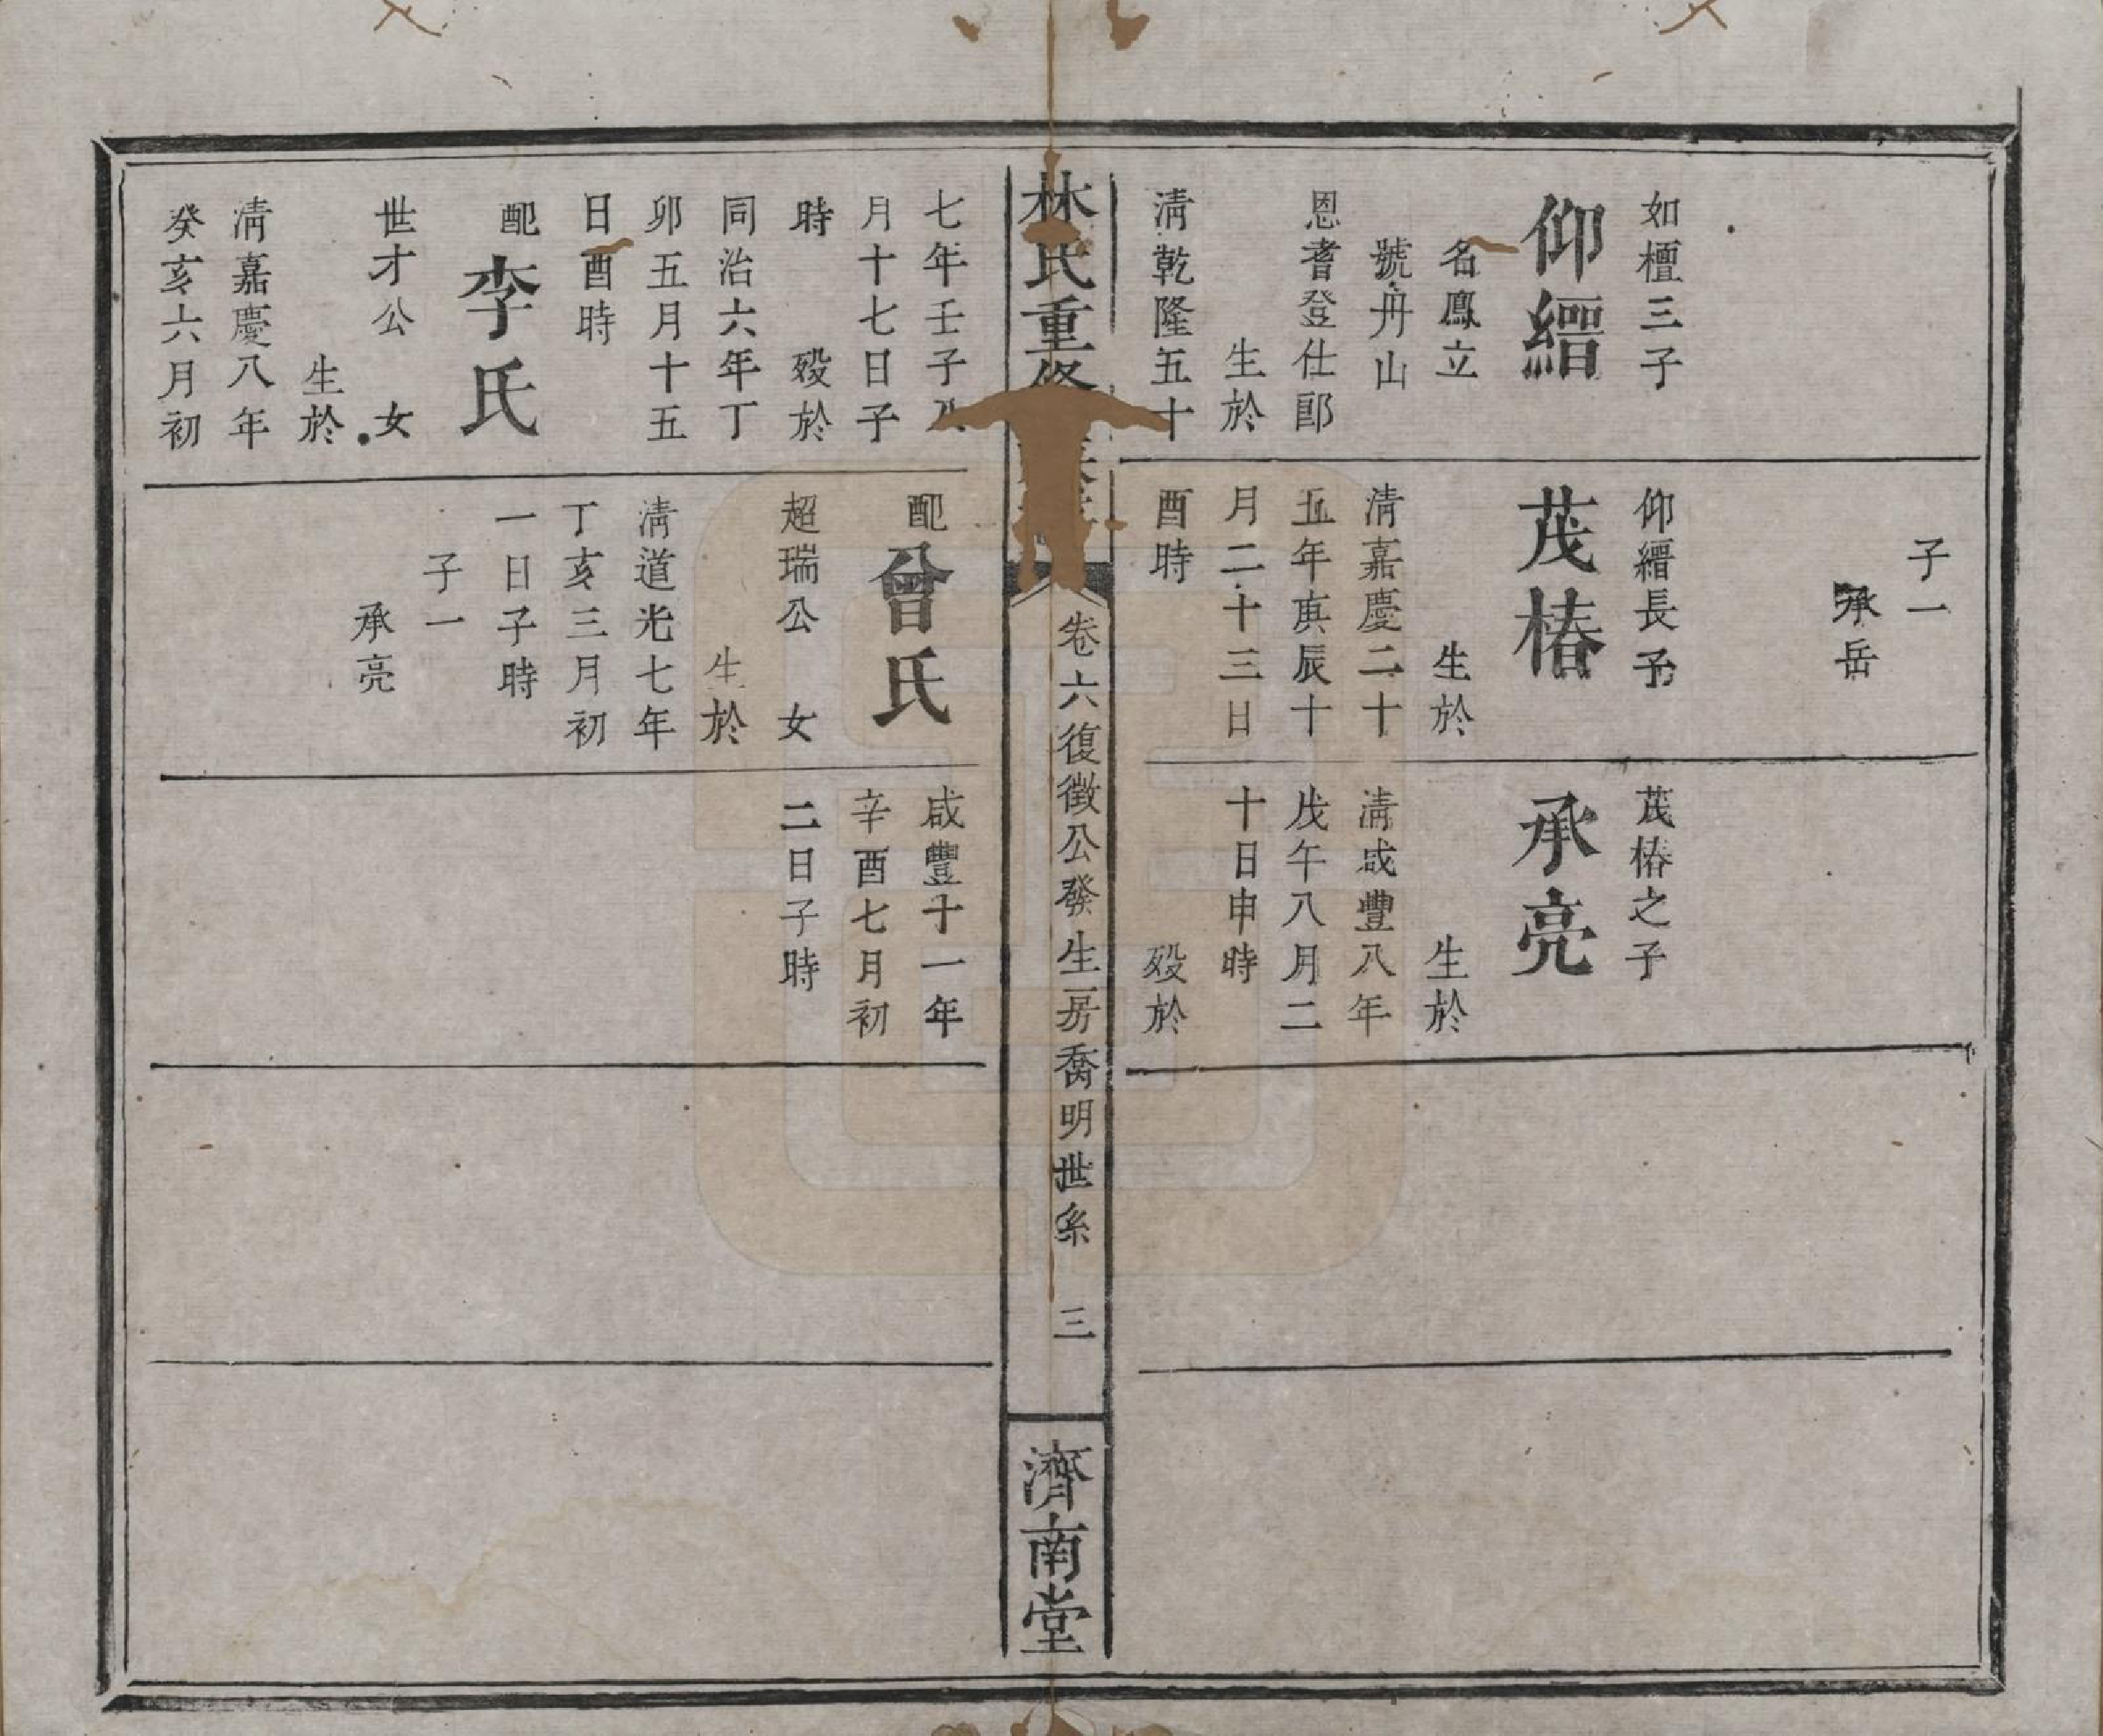 如檀三子
仰縉
名鳳立
號丹山
恩耆登仕郎
生於
清乾隆五十
子一
承岳
仰縉長子
茂椿
生於
清嘉慶二十
五年庚辰十
月二十三日
酉時
茂椿之子
承亮
生於
清咸豐八年
戊午八月二
十日申時
殁於
林氏重修
卷六復徵公發生房喬明世系
三
濟南堂
七年壬子八
月十七日子
時 殁於
同治六年丁
卯五月十五
日酉時
配李氏
世才公 女
生於
清嘉慶八年
癸亥六月初
配曾氏
超瑞公 女
生於
清道光七年
丁亥三月初
一日子時
子一
承亮
咸豐十一年
辛酉七月初
二日子時